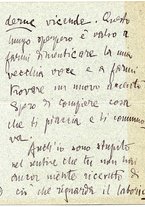 derne vicende. Questo
lungo è valso a
farmi dimenticare la mia
vecchia voce e a farmi
trovare un nuovo accento.
Spero di compiere cosa
che ti piaccia e ti commo
va.
Anch'io sono stupito
nel sentire che tu non hai
ancor niente ricevuto di
ciò che riguarda il